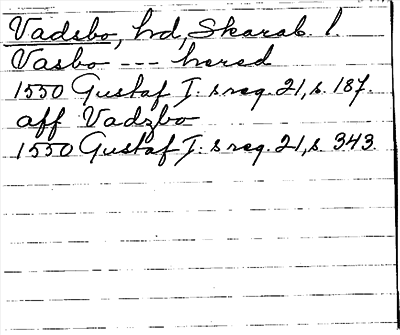 Vadsbo, hd, Skarab. l.
Vasbo --- hersd
1550 Gustaf I: s reg. 21, s. 187.
aff Vadzbo
1550 Gustaf I: s reg. 21, s. 343.